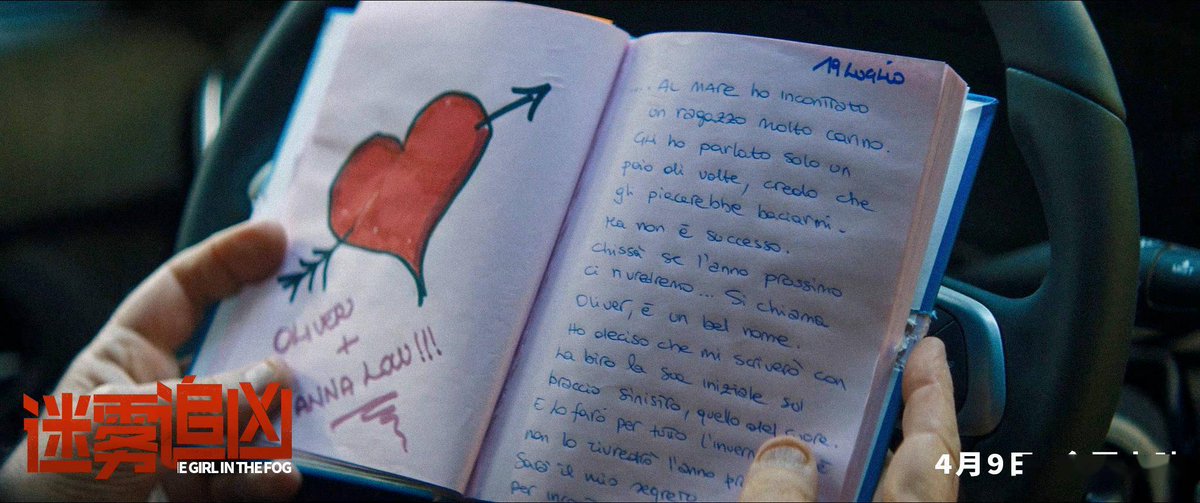 OLIVER
+
ANNA LOU!!!
19 LUGLIO
... AL MARE ho incontrato
un ragazzo molto carino.
Gli ho parlato solo un
paio di volte, credo che
gli piacerebbe baciarmi.
Ma non è successo.
Chissà se l'anno prossimo
ci rivedremo... Si chiama
Oliver, è un bel nome.
Ho deciso che mi scriverò con
la biro la sua iniziale sul
braccio sinistro, quello del cuore.
E lo farò per tutto l'inverno
non lo rivedrò l'anno
Sarà il mio segreto
per
迷雾追凶
E GIRL IN THE FOG
4月9日